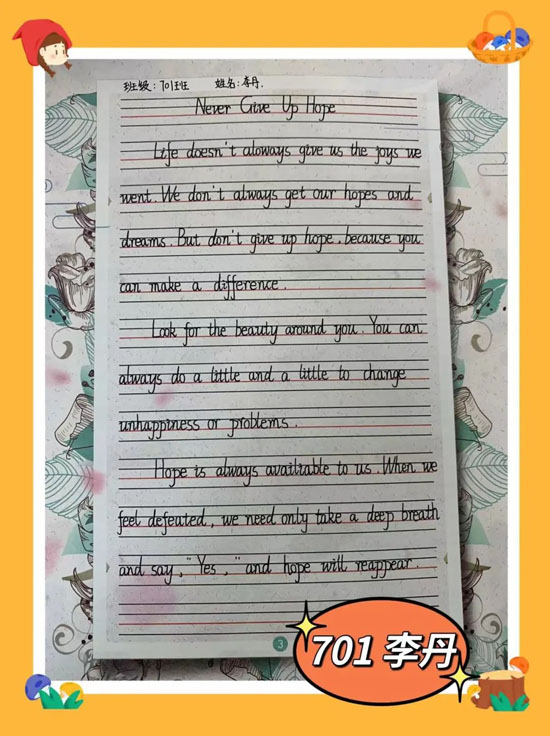 班级：701班 姓名：李丹.
Never Give Up Hope
Life doesn't aloways give us the joys we
went. We don't always get our hopes and
dreams. But don't give up hope, because you
can make a difference.
Look for the beauty around you. You can
always do a little and a little to change
unhappiness or problems.
Hope is always availiable to us. When we
feel defeuted, we need only take a deep breath
and say, "Yes," and hope will reappear.
3
701 李丹